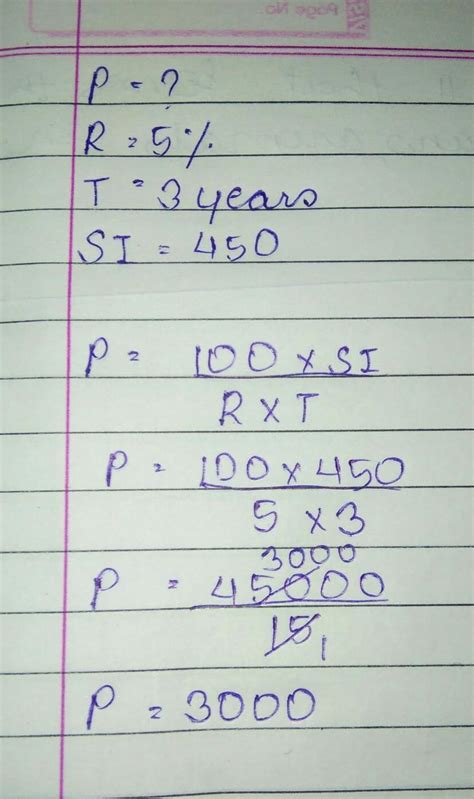 Page No.
P = ?
R = 5%
T = 3 years
SI = 450
P = 100 x SI
R X T
P = 100 x 450
5 x 3
3000
P = 45000
15 1
P = 3000